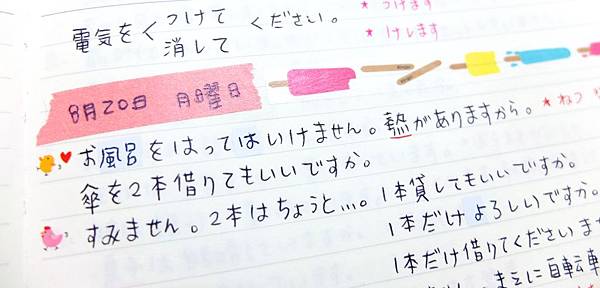 電気を つけて ください。
消して
★ つけます
★ けします
8月20日 月曜日
お風呂をはってはいけません。熱がありますから。 ★ ねつ
傘を2本借りてもいいですか。
すみません。2本はちょうと…。1本貸してもいいですか。
1本だけよろしいですか。
1本だけ借りてくださいま
まえに自転車